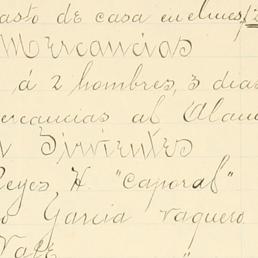 asto de casa en el mes
Mercancias
á 2 hombres, 3 dias
ercancias al Alam
Sirvientes
Reyes, H. "caporal"
o Garcia vaquero
Valt